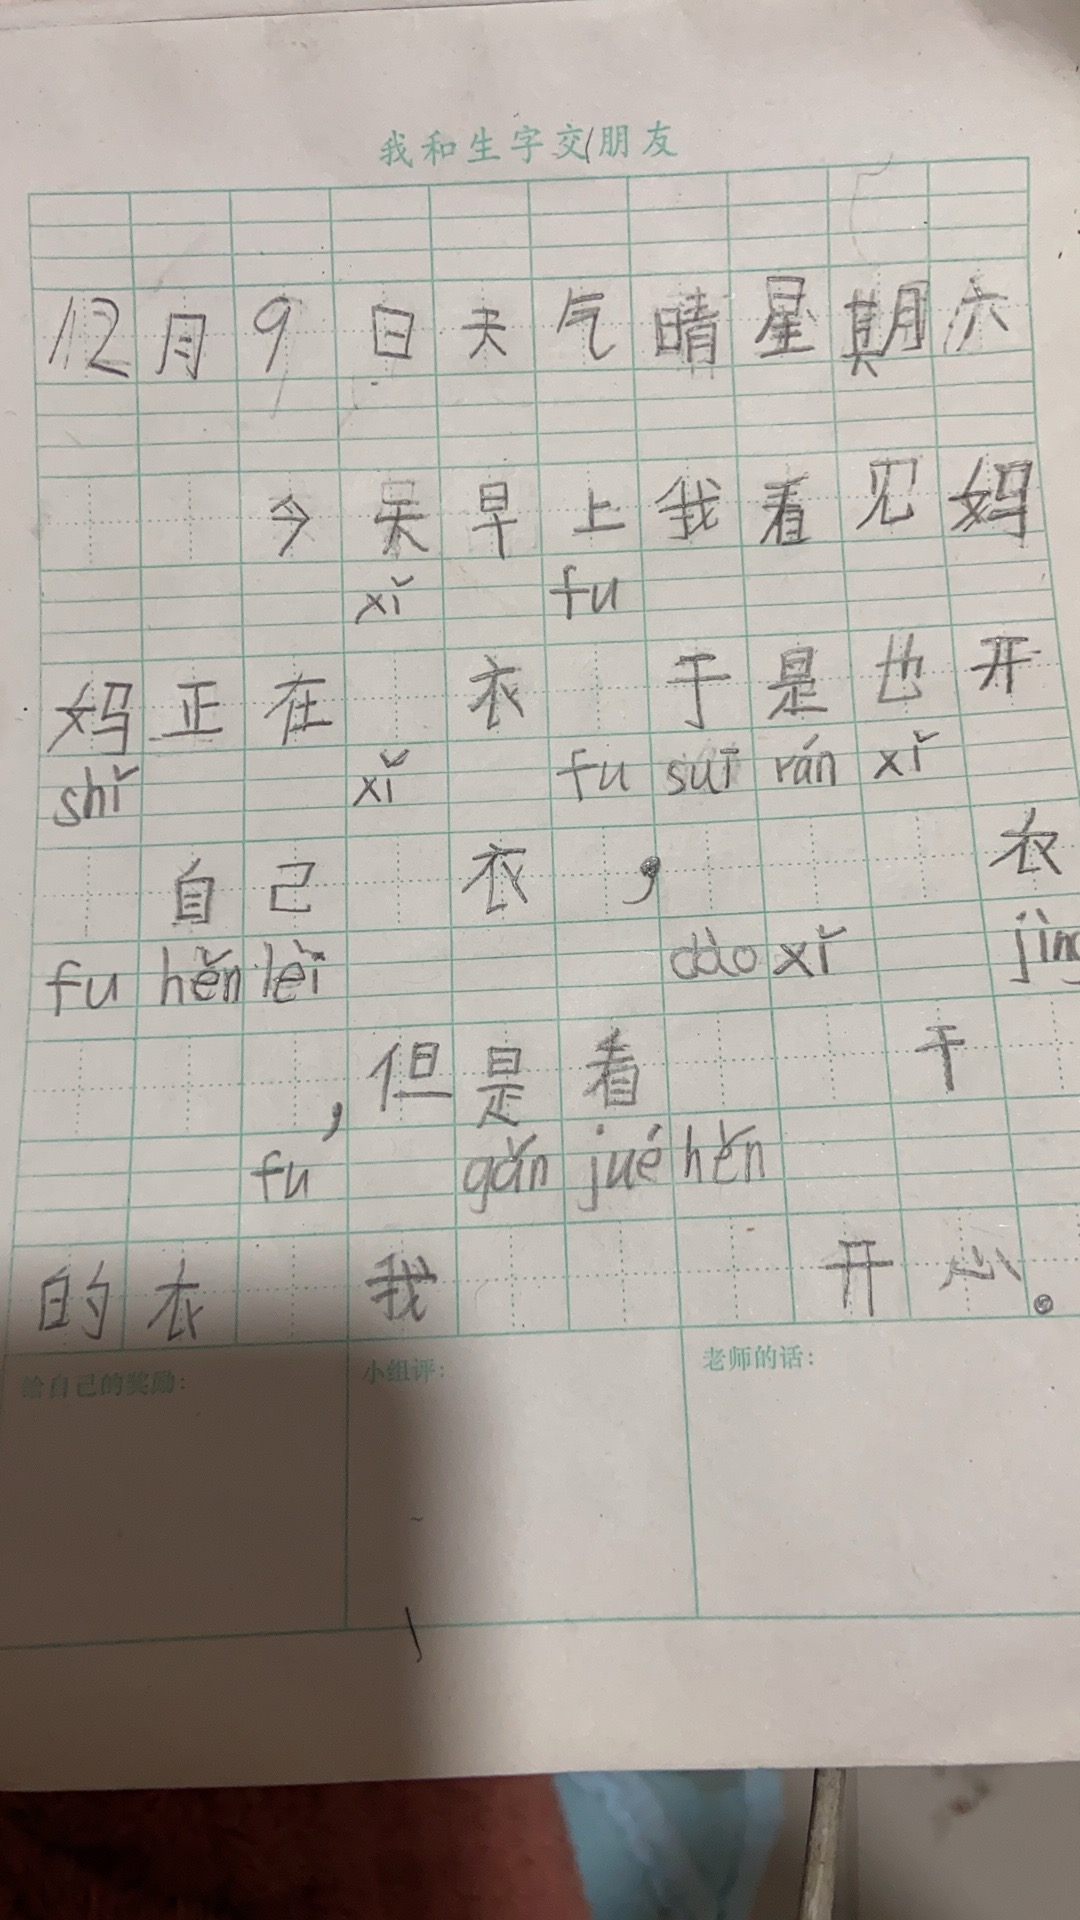 我和生字交朋友
12月9日天气晴星期六
今天早上我看见妈
xǐ fu
妈正在 衣 于是也开
shǐ xǐ fu suī rán xǐ
自己 衣 , 衣
fu hěn lèi dào xǐ jìng
,但是看 干
fu gǎn jué hěn
的衣 我 开心。
给自己的奖励:
小组评:
老师的话: